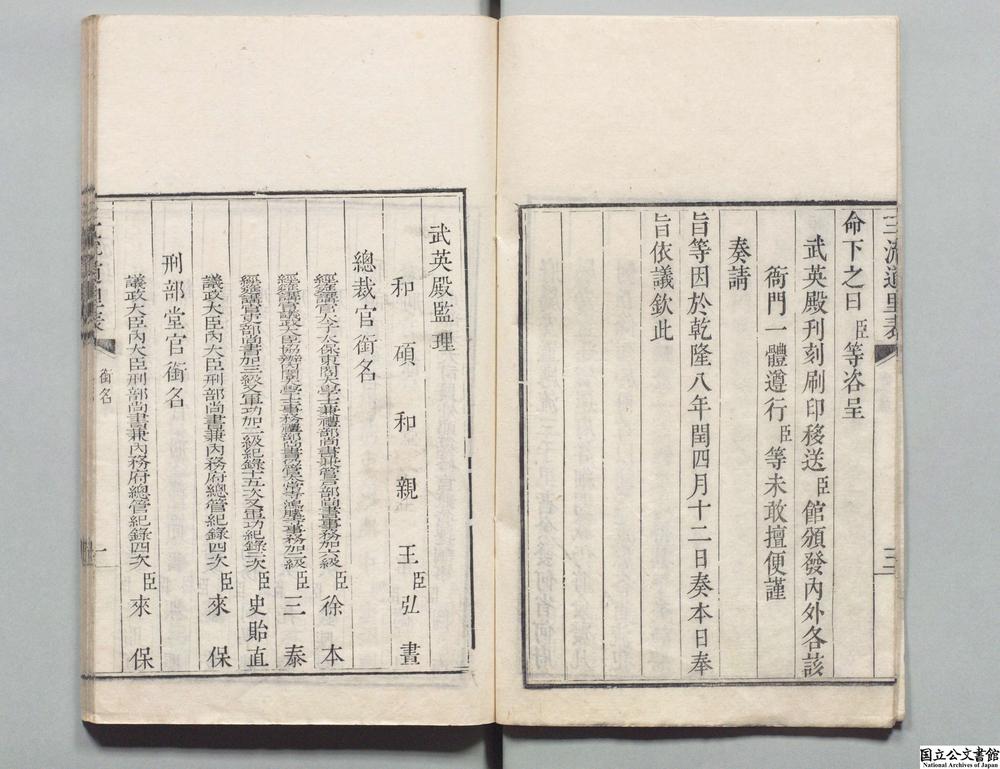 三流道里表
三
命下之日臣等咨呈
武英殿刊刻刷印移送臣館頒發內外各該
衙門一體遵行臣等未敢擅便謹
奏請
旨等因於乾隆八年閏四月十二日奏本日奉
旨依議欽此
武英殿監理
和碩和親王臣弘晝
總裁官銜名
經筵講官太子太保東閣大學士兼禮部尚書兼管戶部尚書事務加六級臣徐本
經筵講官議政大臣協辦內閣大學士事務禮部尚書仍管太常寺鴻臚寺事務加二級臣三泰
經筵講官吏部尚書加三級又軍功加二級紀錄十五次又軍功紀錄三次臣史貽直
議政大臣內大臣刑部尚書兼內務府總管紀錄四次臣來保
刑部堂官銜名
議政大臣內大臣刑部尚書兼內務府總管紀錄四次臣來保
三流道里表
銜名
一
国立公文書館
National Archives of Japan